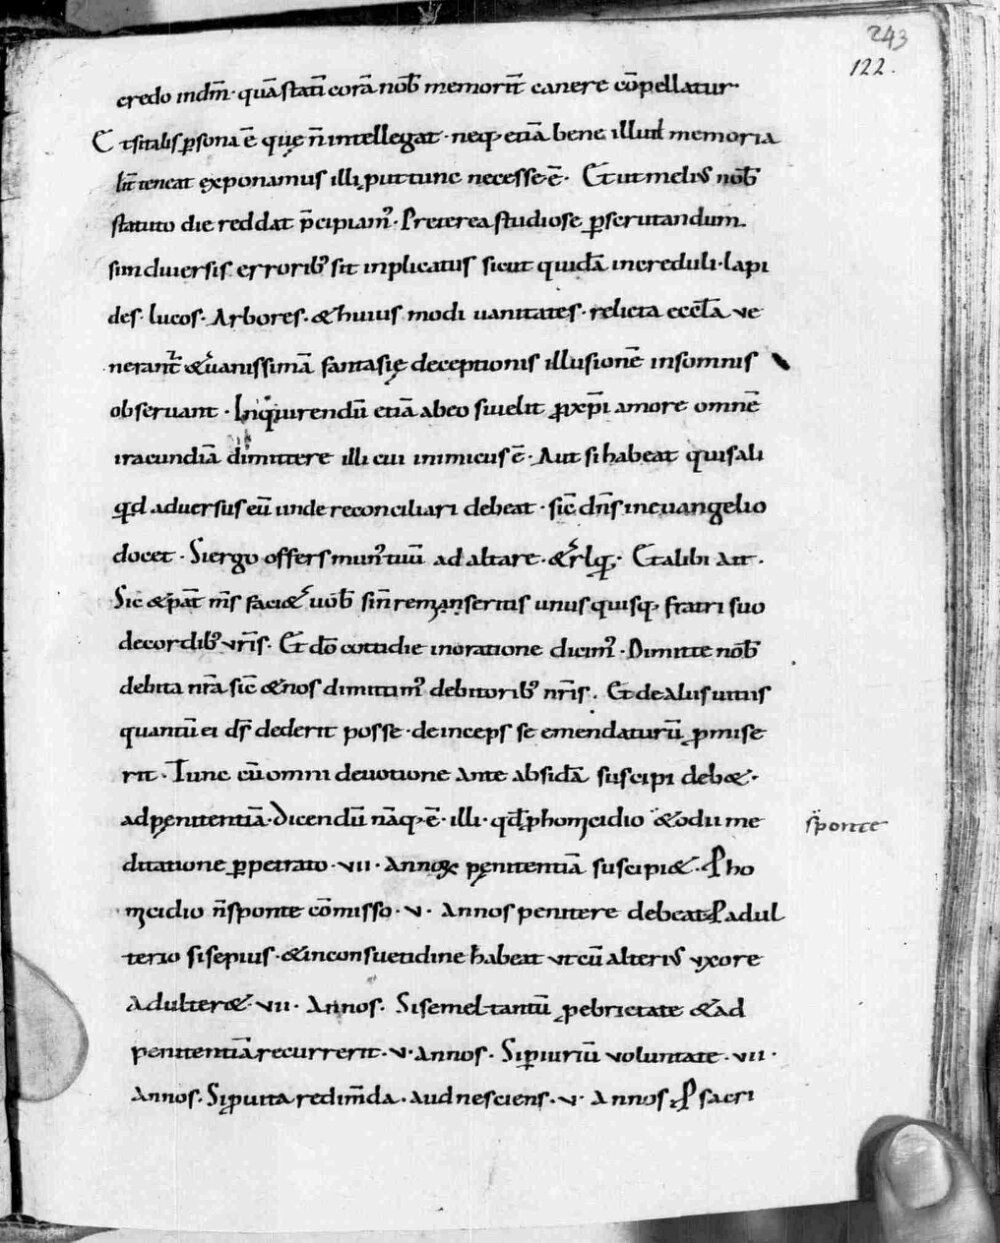 243
122.
credo in dm̄· quā statī corā nob̄ memorit̄ canere cōpellatur·
Et si talis ꝑsona ē que n̄ intellegat· neq; etiā bene illud memoria
lit̄ teneat exponamus illi, put tunc necesse ē· Et ut meliꝰ nob̄
statuto die reddat p̄cipiamꝰ· Preterea studiose ꝑscrutandum.
si in diuersis erroribꝰ sit inplicatus sicut quidā increduli· lapi
des· lucos· Arbores· & huius modi uanitates· relicta eccl̄a ve
nerant̄ & uanissimā fantasię deceptionis illusionē in somnis
obseruant· Inquirendū etiā ab eo si uelit ꝓ xp̄i amore omnē
iracundiā dimittere illi cui inimicus ē· Aut si habeat quis ali
qd aduersus eū unde reconciliari debeat· sic̄ dn̄s in euangelio
docet· Si ergo offers munꝰ tuū ad altare· & rlq;· Et alibi Ait.
Sic & pat̄ m̄s faci& uob̄ sin̄ remanseritis unus quisq; fratri suo
de cordibꝰ vr̄is· Et dō cottidie in oratione dicimꝰ· Dimitte nob̄
debita nr̄a sic̄ & nos dimittimꝰ debitoribꝰ nr̄is. Et de Alus uitiis
quantū ei ds̄ dederit posse· de inceps se emendaturū ꝓmise
rit· Tunc cū omni deuotione Ante absidā suscipi deb&·
ad penitentiā· Dicendū nāq; ē· illi· qd̄ p homicidio & odii me
sponte
ditatione ꝑpetrato· vii· Annoꝝ penitentiā suscipi&· P ho
micidio n̄ sponte cōmisso· v· Annos penitere debeat P adul
terio si sepius· & in consuetudine habeat vt cū alteriꝰ vxore
Adulter&· vii· Annos· Si semel tantū p ebrietate & ad
penitentiā recurrerit· v· Annos· Si ꝑiuriū voluntate· vii·
Annos· Si ꝓ uita redim̄da· Aud nesciens· v· Annos, P sacri